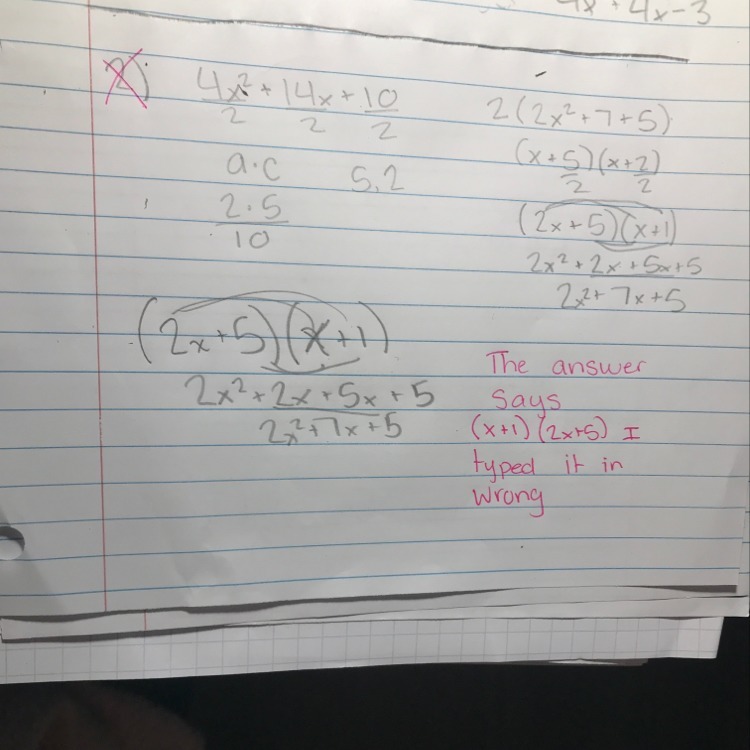 4x + 4x - 3
2)
4x² + 14x + 10
2 2 2
a·c 5,2
2·5
10
2(2x² + 7 + 5)
(x + 5)(x + 2)
2 2
(2x + 5)(x + 1)
2x² + 2x + 5x + 5
2x² + 7x + 5
(2x + 5)(x + 1)
2x² + 2x + 5x + 5
2x² + 7x + 5
The answer
says
(x+1)(2x+5) I
typed it in
wrong